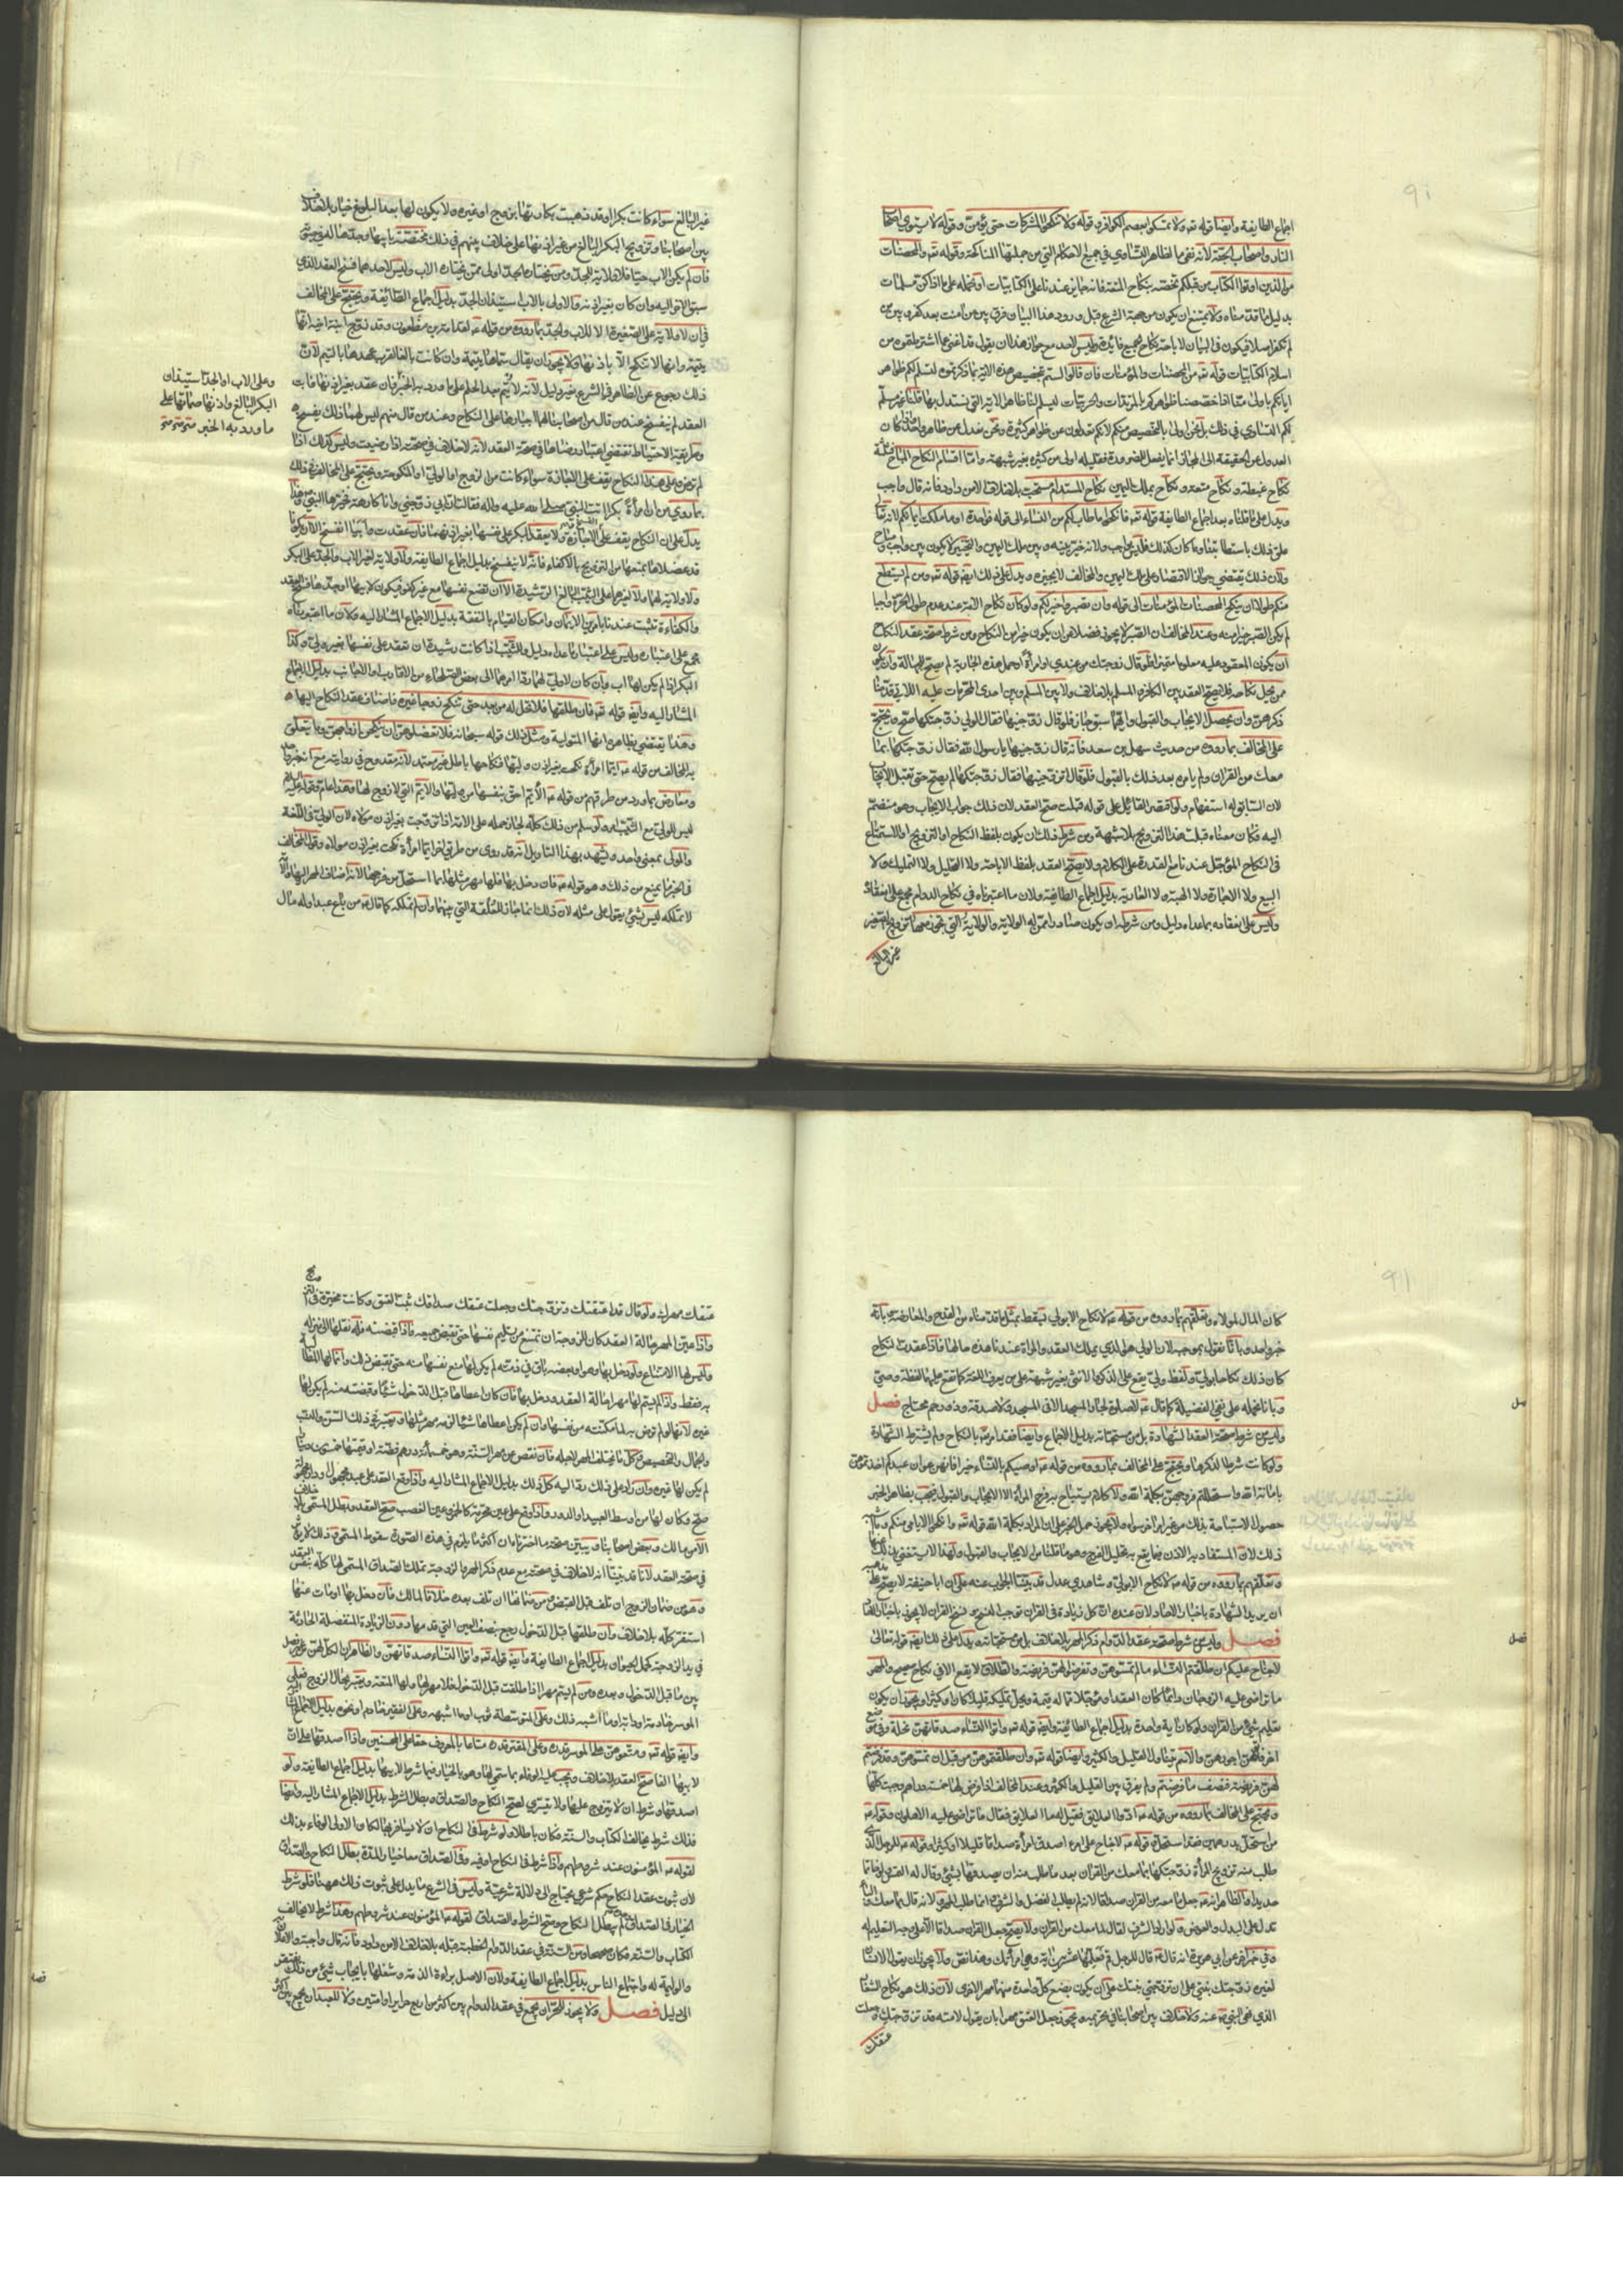 اجماع الطايفة وايضا قوله تعه ولا تمسكوا بعصم الكوافر وقوله ولا تنكحوا المشركات حتى يؤمن وقوله لا يستوي اصحاب
النار واصحاب الجنة لانه نفى بالظاهر التساوي في جميع الاحكام التي من جملتها المناكحة وقوله تعه والمحصنات
من الذين اوتوا الكتاب من قبلكم نخصه بنكاح المتعة فانه جايز عندنا على الكتابيات او نحمله على ما اذا كن مسلمات
بدليل ما قدمناه ولا يمتنع ان يكون من جهة الشرع قبل ورود هذا البيان فرق بين من امنت بعد كفر وبين من
لم تكفر اصلا فيكون في البيان لاباحة نكاح الجميع فائدة وليس لاحد مع جواز هذا ان يقول قد اغنى عما اشترطتموه من
اسلام الكتابيات قوله تعه من المحصنات والمؤمنات فان قالوا لستم بتخصيص هذه الاية بما ذكرتموه لتسلم لكم ظواهر
اياتكم باولى منا اذا خصصنا ظواهركم بالمرتدات والحربيات ليسلم لنا ظاهر الاية التي نستدل بها قلنا غير مسلم
لكم التساوي في ذلك بل نحن اولى بالتخصيص منكم لانكم تعدلون عن ظواهر كثيرة ونحن نعدل عن ظاهر واحد واذا كان
العدول عن الحقيقة الى المجاز انما يفعل للضرورة فقليله اولى من كثيره بغير شبهة واما اقسام النكاح المباح فثلثة
نكاح غبطة ونكاح متعة ونكاح بملك اليمين نكاح المستدام مستحب بلا خلاف الا من داود فانه قال واجب
ويدل على ما قلناه بعد اجماع الطايفة قوله تعه فانكحوا ما طاب لكم من النساء الى قوله فواحدة او ما ملكت ايمانكم لانه تعا
علق ذلك باستطابتنا وما كان كذلك فليس بواجب ولانه خير بينه وبين ملك اليمين والتخيير لا يكون بين واجب ومباح
ولان ذلك يقتضي جواز الاقتصار على ملك اليمين والمخالف لا يجيزه ويدل على ذلك ايضا قوله تعه ومن لم يستطع
منكم طولا ان ينكح المحصنات المؤمنات الى قوله وان تصبروا خير لكم ولو كان نكاح الامة عند عدم طول الحرة واجبا
لم يكن الصبر خيرا منه وعند المخالف ان الصبر لا يجوز فضلا من ان يكون خيرا من النكاح ومن شرط صحة عقد النكاح
ان يكون المعقود عليه معلوما متميزا فلو قال زوجتك من عندي او امرأة او حمل هذه الجارية لم يصح للجهالة وان يكون
ممن يحل نكاحه فلا يصح العقد بين الكافر والمسلم بلا خلاف ولا بين المسلم وبين احدى المحرمات عليه اللاتي قدمنا
ذكرهن وان يحصل الايجاب والقبول وايهما سبق جاز فلو قال زوجنيها فقال الولي زوجتكها صح ونحتج
على المخالف بما رووه من حديث سهل بن سعد فانه قال زوجنيها يا رسول الله فقال زوجتكها بما
معك من القران ولم يامره بعد ذلك بالقبول فلو قال اتزوجنيها فقال زوجتكها لم يصح حتى تقبل الايجاب
لان السابق له استفهام ولو اقتصر القائل على قوله قبلت صح العقد لان ذلك جواب الايجاب وهو منضم
اليه فكان معناه قبلت هذا التزويج بلا شبهة ومن شرط ذلك ان يكون بلفظ النكاح او التزويج او الاستمتاع
في النكاح المؤجل عندنا مع القدرة على الكلام ولا يصح العقد بلفظ الاباحة ولا التحليل ولا التمليك ولا
البيع ولا الاجارة ولا الهبة ولا العارية بدليل اجماع الطايفة ولان ما اعتبرناه في نكاح الدوام مجمع على انعقاده
وليس على انعقاده بما عداه دليل ومن شرطه ان يكون صادرا ممن له الولاية والولاية التي يجوز معها تزويج الصغيرة
غير البالغ سواء كانت بكرا او قد ذهبت بكارتها بزوج او غيره ولا يكون لها بعد البلوغ خيار بلا خلاف
بين اصحابنا وتزويج البكر البالغ من غير اذنها على خلاف بينهم في ذلك مختصة بابيها وجدها له في حيوته
فان لم يكن الاب حيا فلا ولاية للجد ومن يختاره الجد اولى ممن يختاره الاب وليس لاحدهما فسخ العقد الذي
سبق الاخر اليه وان كان بغير اذنه فالاولى بالاب استيذان الجد بدليل اجماع الطائفة ونحتج على المخالف
في ان لا ولاية على الصغيرة الا للاب والجد بما رووه من قوله عه لقدامة بن مظعون وقد زوج ابنة اخيه انها
يتيمة وانها لا تنكح الا باذنها ولا يجوز ان يقال سماها يتيمة وان كانت بالغا لقرب عهدها باليتم لان
ذلك رجوع عن الظاهر في الشرع بغير دليل لانه لا يتم بعد الحلم على ما ورد به الخبر فان عقد بغير اذنها فابت
العقد لم ينفسخ عند من قال من اصحابنا لهما اجبارها على النكاح وعند من قال منهم ليس لهما ذلك ينفسخ
وطريقة الاحتياط تقتضي اعتبار رضاها في صحة العقد لانه لا خلاف في صحته اذا رضيت وليس كذلك اذا
لم ترض وعلى هذا النكاح يقف على الاجازة سواء كانت من الزوج او الولي او المنكوحة ونحتج على المخالف في ذلك
بما روي من ان امرأة بكرا اتت النبي صلى الله عليه واله فقالت ان ابي زوجني وانا كارهة فخيرها النبي وهذا
يدل على ان النكاح يقف على الاجازة ولا يعقد البكر على نفسها بغير اذنهما فان عقدت وابيا انفسخ الا ان يكونا
قد عضلاها بمنعها من التزويج بالاكفاء فانه لا ينفسخ بدليل اجماع الطايفة ولا ولاية لغير الاب والجد على البكر
ولا ولاية لهما ولا لغيرهما على الثيب البالغ الرشيدة الا ان تضع نفسها مع غير كفو فيكون لابيها او جدها فسخ العقد
والكفاءة تثبت عندنا بامرين الايمان وامكان القيام بالنفقة بدليل الاجماع المشار اليه ولان ما اعتبرناه
مجمع على اعتباره وليس على اعتبار ما عداه دليل وللثيب اذا كانت رشيدة ان تعقد على نفسها بغير ولي وكذا
البكر اذا لم يكن لها اب وان كان لاولى لهما ردا امرهما الى بعض الصلحاء من الاقارب او الاجانب بدليل الاجماع
المشار اليه وايضا قوله تعه فان طلقها فلا تحل له من بعد حتى تنكح زوجا غيره فاضاف عقد النكاح اليها
وهذا يقتضي بظاهره انها المتولية ومثل ذلك قوله سبحانه فلا تعضلوهن ان ينكحن ازواجهن وما يتعلق
به المخالف من قوله عه ايما امرأة نكحت بغير اذن وليها فنكاحها باطل غير معتمد لانه مقدوح في رواته مع انه خبر واحد
ومعارض بما ورد من طرقهم من قوله عه الايم احق بنفسها من وليها والايم التي لا زوج لها وهذا عام وقوله عليه السلام
ليس للولي مع الثيب امر ولو سلم من ذلك كله لجاز حمله على الامة اذا تزوجت بغير اذن مولاه لان الولي في اللغة
والمولى بمعنى واحد ويشهد بهذا التاويل انه قد روى من طريق اخر ايما امرأة نكحت بغير اذن مولاه وقول المخالف
في الخبر ما يمنع من ذلك وهو قوله عه فان دخل بها فلها مهر مثلها بما استحل من فرجها لانه اضاف المهر اليها والامة
لا تملكه ليس بشيء يعول على مثله لان ذلك انما جاز للعلقة التي بينهما وان لم تملكه كما قال عه من باع عبدا وله مال
وعلى الاب او الجد استيذان
البكر البالغ واذنها صماتها على
ما ورد به الخبر
كان المال لمولاه وتعلقهم بما رووه من قوله عه لا نكاح الا بولي يسقط بمثل ما قدمناه من القدح والمعارضة بانه
خبر واحد وبانا نقول بموجبه لان الولي هو الذي يملك العقد والمراة عندنا هذه حالها فاذا عقدت النكاح
كان ذلك نكاحا بولي ولفظ ولي يقع على الذكر والانثى بغير شبهة على من يعرف اللغة كما تقع عليهما لفظة وصي
وبانا نحمله على نفي الفضيلة كما قال عه لا صلوة لجار المسجد الا في المسجد ولا صدقة وذو رحم محتاج فصل
وليس من شرط صحة العقد الشهادة بل من مستحباته بدليل الاجماع وايضا فقد امر تعه بالنكاح ولم يشترط الشهادة
ولو كانت شرطا لذكرها ونحتج على المخالف بما رووه من قوله عه اوصيكم بالنساء خيرا فانهن عوان عندكم اخذتموهن
بامانة الله واستحللتم فروجهن بكلمة الله ولا كلام يستباح به فرج المرأة الا الايجاب والقبول فيجب بظاهر الخبر
حصول الاستباحة بذلك من غير امر اخر سواه ولا يجوز حمل الخبر على ان المراد بكلمة الله قوله تعه وانكحوا الايامى منكم وما اشبه
ذلك لان المستفاد به الاذن فيما يقع به تحليل الفرج وهو ما قلنا من الايجاب والقبول ولهذا لا يستغني بذلك عنهما
وتعلقهم بما رووه من قوله عه لا نكاح الا بولي وشاهدي عدل قد بينا الجواب عنه على ان ابا حنيفة لا يصح على مذهبه
ان يزيد الشهادة باخبار الاحاد لان عنده ان كل زيادة في القران توجب النسخ ونسخ القران لا يجوز باخبار الاحاد
فصل وليس من شرط صحة عقد الدوام ذكر المهر بلا خلاف بل من مستحباته ويدل على ذلك ايضا قوله تعالى
لا جناح عليكم ان طلقتم النساء ما لم تمسوهن وتفرضوا لهن فريضة والطلاق لا يقع الا في نكاح صحيح والمهر
ما تراضى عليه الزوجان دائما كان العقد او مؤجلا مما له قيمة ويحل تملكه قليلا كان او كثيرا ويجوز ان يكون
تعليم شيء من القران ولو كان اية واحدة بدليل اجماع الطائفة وايضا قوله تعه واتوا النساء صدقاتهن نحلة وفي موضع
اخر فاتوهن اجورهن والاسم يتناول القليل والكثير وايضا قوله تعه وان طلقتموهن من قبل ان تمسوهن وقد فرضتم
لهن فريضة فنصف ما فرضتم ولم يفرق بين القليل والكثير وعند المخالف اذا فرض لها خمسة دراهم وجبت كلها
ونحتج على المخالف بما رووه من قوله عه ادوا العلايق فقيل له ما العلايق فقال ما تراضى عليه الاهلون وقوله عه
من استحل بدرهمين فقد استحل وقوله عه لا جناح على امرء اصدق امرأة صداقا قليلا او كثيرا وقوله عه للرجل الذي
طلب منه تزويج المرأة زوجتكها بما معك من القران بعد ما طلب منه ان يصدقها بشيء وقال له التمس ولو خاتما
حديدا والظاهر انه عه جعل ما معه من القران صداقا لانه لم يطلب الفضل والشرف وانما طلب المهر ولانه قال بما معك والبا
تدل على البدل والعوض ولو اراد الشرف لقال لما معك من القران ولا يصح جعل القران صداقا الا على وجه التعليم له
وفي خبر اخر عن ابي هريرة انه قال عه قال للرجل قم فعلمها عشرين اية وهي امرأتك وهذا نص ولا يجوز ان يقول الانسان
لغيره زوجتك بنتي على ان تزوجني بنتك على ان يكون بضع كل واحدة منهما مهر الاخرى لان ذلك هو نكاح الشغار
الذي نهى النبي عه عنه ولا خلاف بين اصحابنا في تحريمه ويجوز جعل العتق مهرا بان يقول لامته قد تزوجتك وجعلت
عتقك مهرك ولو قال قد اعتقتك وتزوجتك وجعلت عتقك صداقك ثبت العتق وكانت مخيرة في التزويج
واذا عين المهر حالة العقد كان للزوجة ان تمتنع من تسليم نفسها حتى تقبض جميعه فاذا قبضته فله نقلها الى منزله
وليس لها الامتناع ولو دخل بها وهو او بعضه باق في ذمته لم يكن لها منع نفسها منه حتى تقبض ذلك وانما لها المطالبة
به فقط واذا لم يسم لها مهرا حالة العقد ودخل بها فان كان اعطاها قبل الدخول شيئا وقبضته منه لم يكن لها
غيره لانها لو لم ترض به لما مكنته من نفسها وان لم يكن اعطاها شيئا لزمه مهر مثلها ويعتبر في ذلك السن والنسب
والجمال والتخصيص فكل ما يختلف المهر لاجله فان نقص عن مهر السنة وهو خمسمائة درهم فضة او قيمتها خمسون دينارا
لم يكن لها غيره وان زاد على ذلك رد اليه كل ذلك بدليل الاجماع المشار اليه واذا وقع العقد على عبد مجهول ودار مجهولة
صح وكان لها من اوسط العبيد او الدور واذا وقع على عين محرمة كالخمر وعين الغصب صح العقد وبطل المسمى بلا خلاف
الا من مالك وبعض اصحابنا ويبين صحة ما اخترناه ان اكثر ما يلزم في هذه الصورة سقوط المسمى وذلك لا يؤثر
في صحة العقد لانا قد بينا انه لا خلاف في صحته مع عدم ذكر المهر والزوجة تملك الصداق المسمى لها كله بنفس العقد
وهو من ضمان الزوج ان تلف قبل القبض ومن ضمانها ان تلف بعده خلافا لمالك فان دخل بها او مات عنها
استقر كله بلا خلاف وان طلقها قبل الدخول رجع بنصف العين التي قد مهرها دون الزيادة المنفصلة الحادثة
في يد الزوجة كحمل الحيوان بدليل اجماع الطايفة وايضا قوله تعه واتوا النساء صدقاتهن والظاهر ان الكل لهن من غير فصل
بين ما قبل الدخول وبعده ومن لم يسم مهرا اذا طلقت قبل الدخول فلا مهر لها ولها المتعة ويعتبر بحال الزوج فعلى
الموسر خادمة او دابة او ما اشبه ذلك وعلى المتوسطة ثوب او ما اشبهه وعلى الفقير خاتم او نحوه بدليل الاجماع المشار
وايضا قوله تعه ومتعوهن على الموسع قدره وعلى المقتر قدره متاعا بالمعروف حقا على المحسنين واذا اصدقها على ان
لابيها الفا صح العقد بلا خلاف ويجب عليه الوفاء بما سمى لها وهو بالخيار فيما شرط لابيها بدليل اجماع الطايفة ولو
اصدقها وشرط ان لا يتزوج عليها ولا يتسرى لصح النكاح والصداق وبطل الشرط بدليل الاجماع المشار اليه وايضا
فذلك شرط يخالف الكتاب والسنة فكان باطلا ولو شرط في النكاح ان لا يسافر بها لكان الاولى الوفاء بذلك
لقوله عه المؤمنون عند شروطهم واذا شرط في النكاح او فيه وفي الصداق معا خيار المدة بطل النكاح والصداق
لان ثبوت عقد النكاح حكم شرعي يحتاج الى دلالة شرعية وليس في الشرع ما يدل على ثبوت ذلك ههنا فلو شرط
الخيار في الصداق لم يبطل النكاح وصح الشرط والصداق لقوله عه المؤمنون عند شروطهم وهذا شرط لا يخالف
الكتاب والسنة فكان صحيحا ومن السنة في عقد الدوام الخطبة قبله بلا خلاف الا من داود فانه قال واجبة والاعلان
والوليمة له واجتماع الناس بدليل اجماع الطايفة ولان الاصل براءة الذمة وشغلها بايجاب شيء من ذلك يفتقر
الى دليل فصل ولا يجوز للحر ان يجمع في عقد الدوام بين اكثر من اربع حراير او امتين ولا للعبد ان يجمع بين اكثر